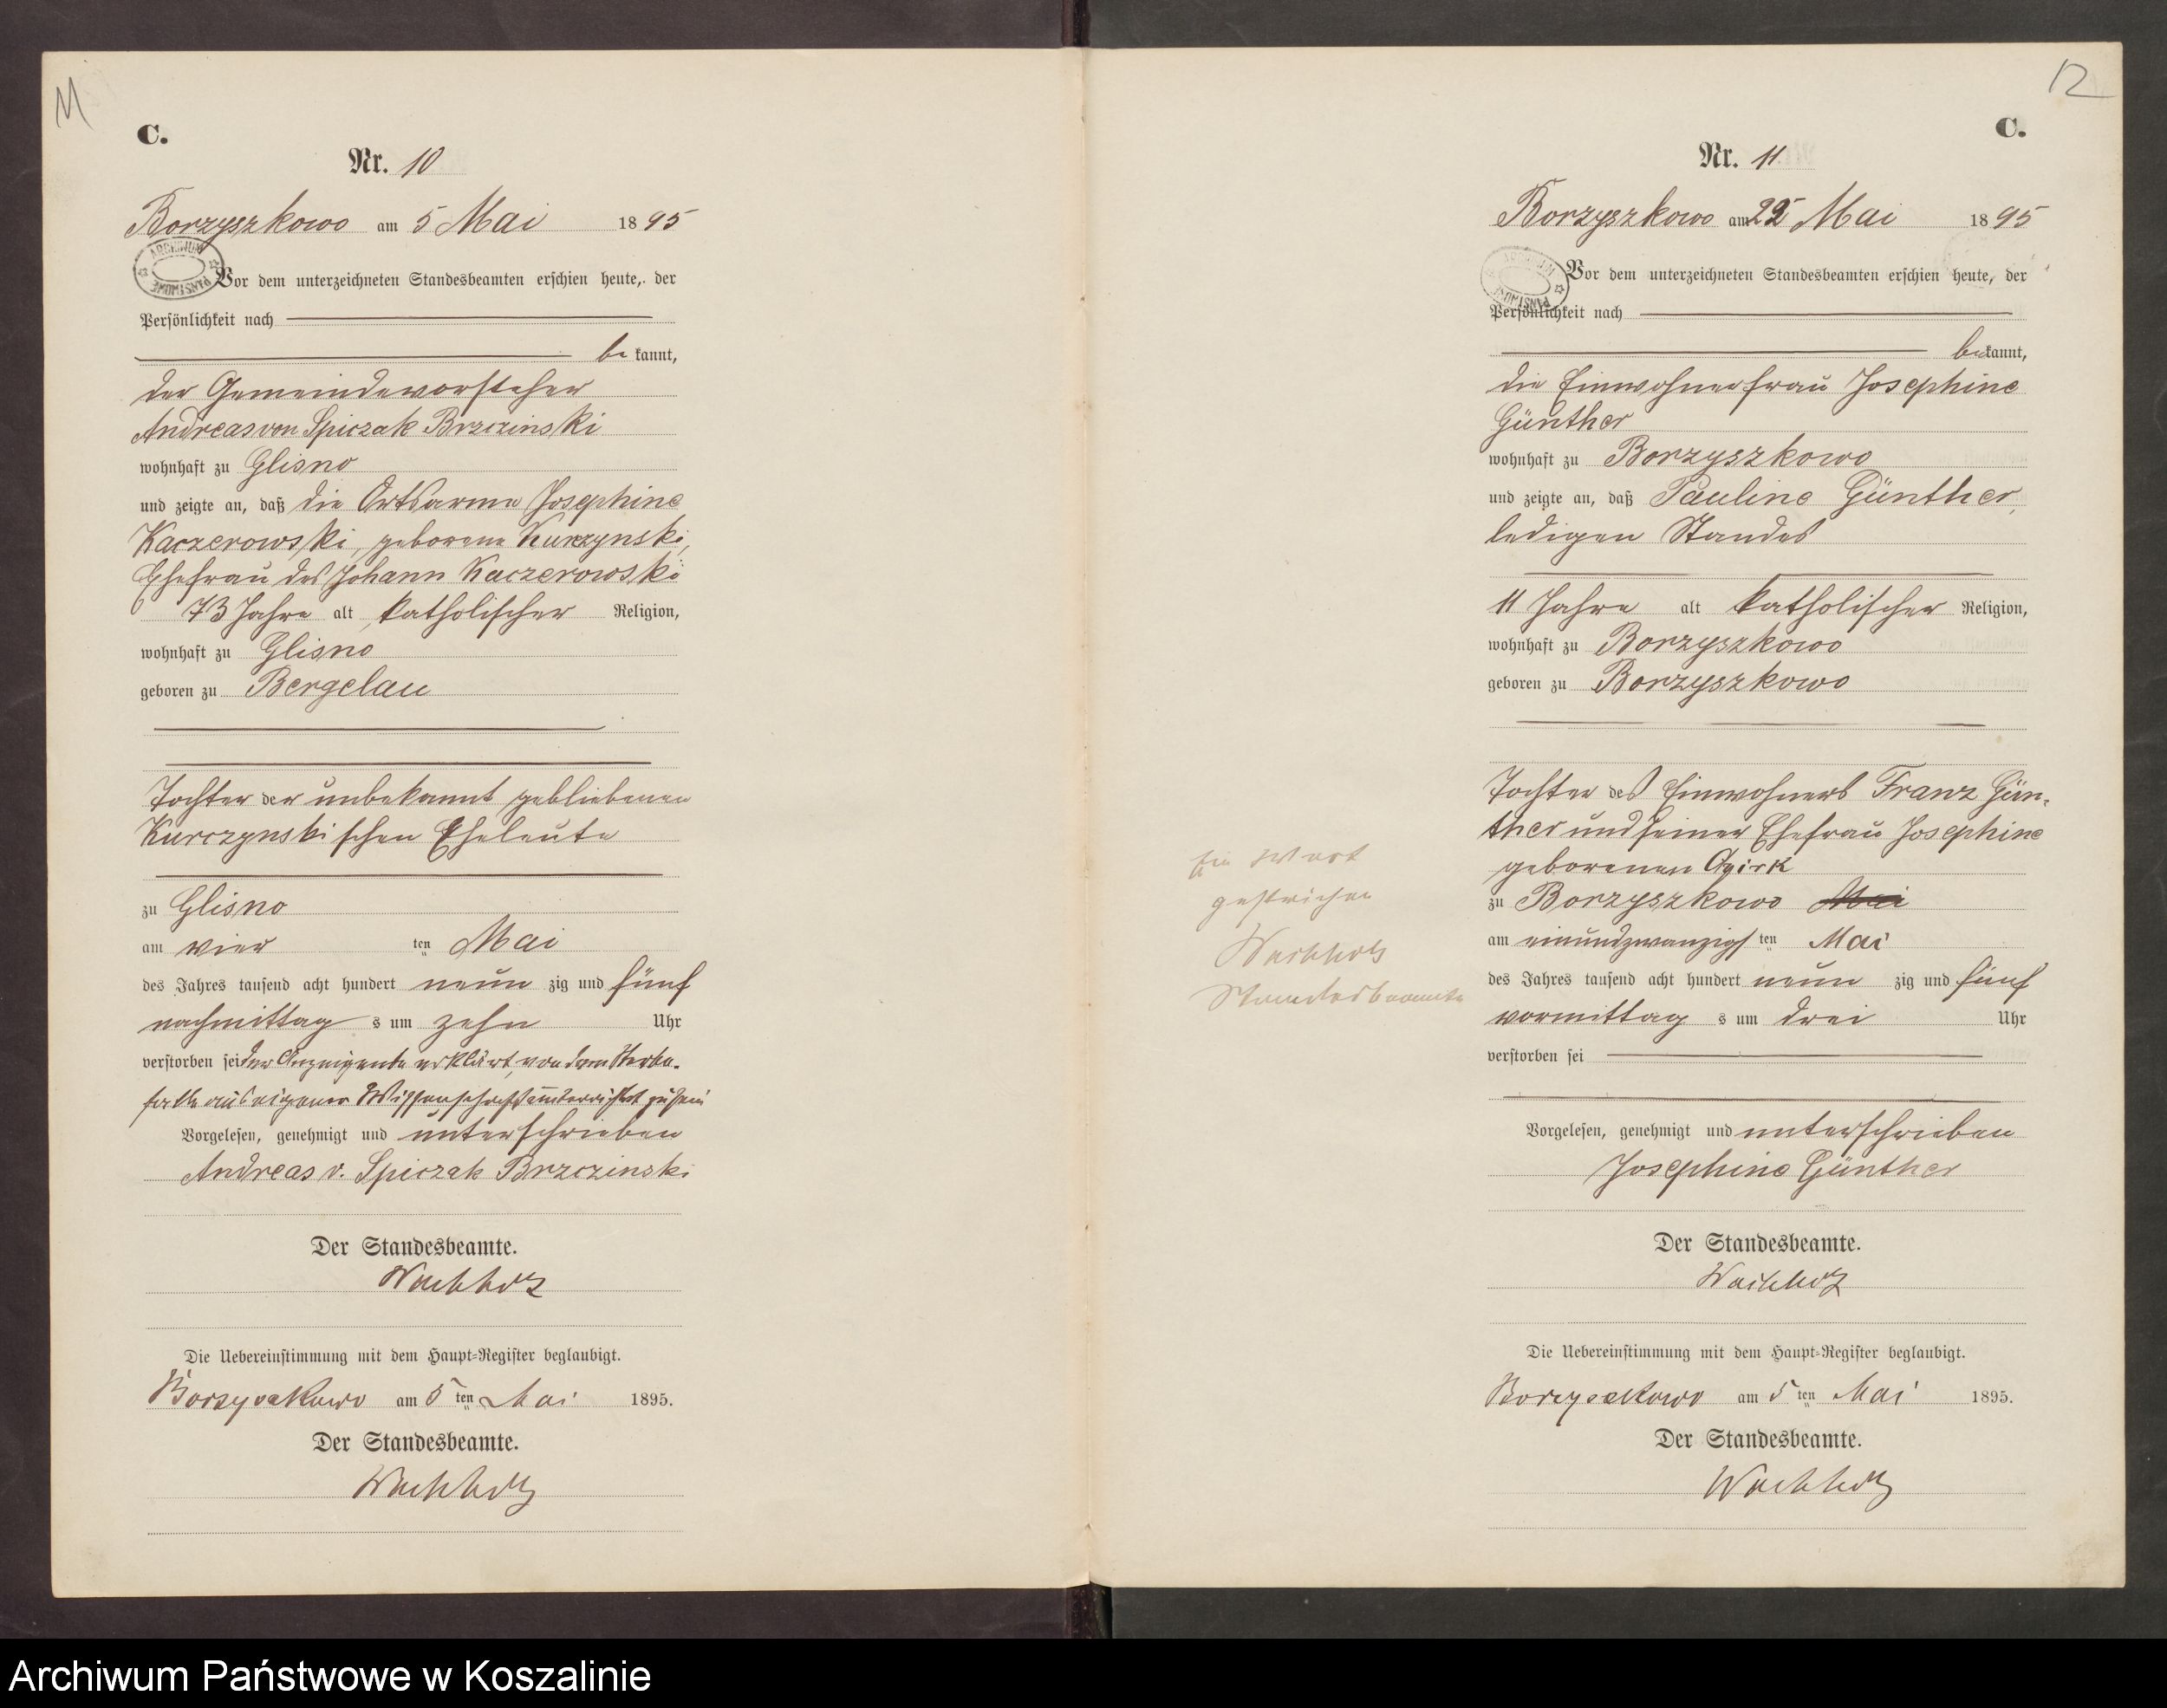 11
C.
Nr. 10
Borzyszkowo am 5 Mai 1895
ARCHIWUM PAŃSTWOWE
Vor dem unterzeichneten Standesbeamten erschien heute, der
Persönlichkeit nach
be kannt,
der Gemeindevorsteher
Andreas von Spiczak Brzezinski
wohnhaft zu Glisno
und zeigte an, daß die Ortsarme Josephine
Kaczerowski, geborene Kurczynski,
Ehefrau des Johann Kaczerowski
73 Jahre alt, katholischer Religion,
wohnhaft zu Glisno
geboren zu Bergelau
Tochter der unbekannt gebliebenen
Kurczynskischen Eheleute
zu Glisno
am vier ten Mai
des Jahres tausend acht hundert neun zig und fünf
nachmittag s um zehn Uhr
verstorben sei der Anzeigende erklärt, von dem Sterbe-
falle aus eigener Wissenschaft unterrichtet zu sein
Vorgelesen, genehmigt und unterschrieben
Andreas v. Spiczak Brzczinski
Der Standesbeamte.
Wachholz
Die Uebereinstimmung mit dem Haupt-Register beglaubigt.
Borzyszkowo am 5 ten Mai 1895.
Der Standesbeamte.
Wachholz
12
C.
Nr. 11
Borzyszkowo am 22 Mai 1895
ARCHIWUM PAŃSTWOWE
Vor dem unterzeichneten Standesbeamten erschien heute, der
Persönlichkeit nach
bekannt,
die Einwohnerfrau Josephine
Günther
wohnhaft zu Borzyszkowo
und zeigte an, daß Pauline Günther,
ledigen Standes
11 Jahre alt katholischer Religion,
wohnhaft zu Borzyszkowo
geboren zu Borzyszkowo
Tochter des Einwohners Franz Gün-
ther und seiner Ehefrau Josephine
geborenen
zu Borzyszkowo Mai
am einundzwanzigs ten Mai
des Jahres tausend acht hundert neun zig und fünf
vormittag s um drei Uhr
verstorben sei
Vorgelesen, genehmigt und unterschrieben
Josephine Günther
Der Standesbeamte.
Wachholz
Die Uebereinstimmung mit dem Haupt-Register beglaubigt.
Borzyszkowo am 5 ten Mai 1895.
Der Standesbeamte.
Wachholz
Ein Wort
gestrichen
Wachholz
Standesbeamte
Archiwum Państwowe w Koszalinie